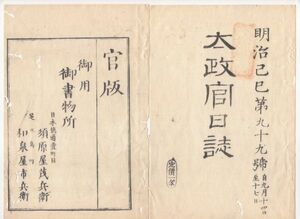 明治己巳第九十九號
自九月十四日
至十七日
太政官日誌
官版
御用
御書物所
日本橋通壹町目
須原屋茂兵衛
和泉屋市兵衛